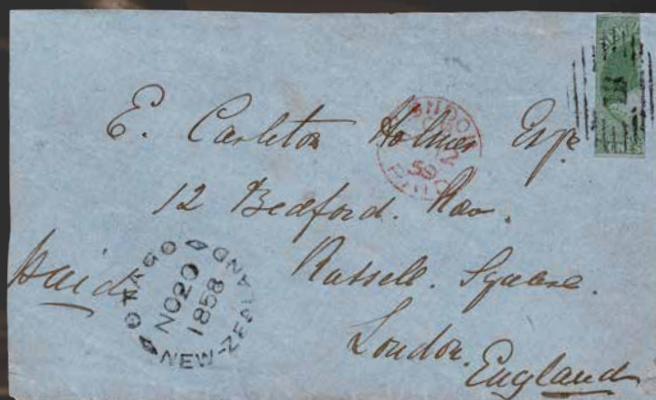 E. Carleton Holmes Esqr
12 Bedford. Row.
Russell. Square.
London.
England
Paid
OTAGO
NO 20
1858
NEW-ZEALAND
PAID